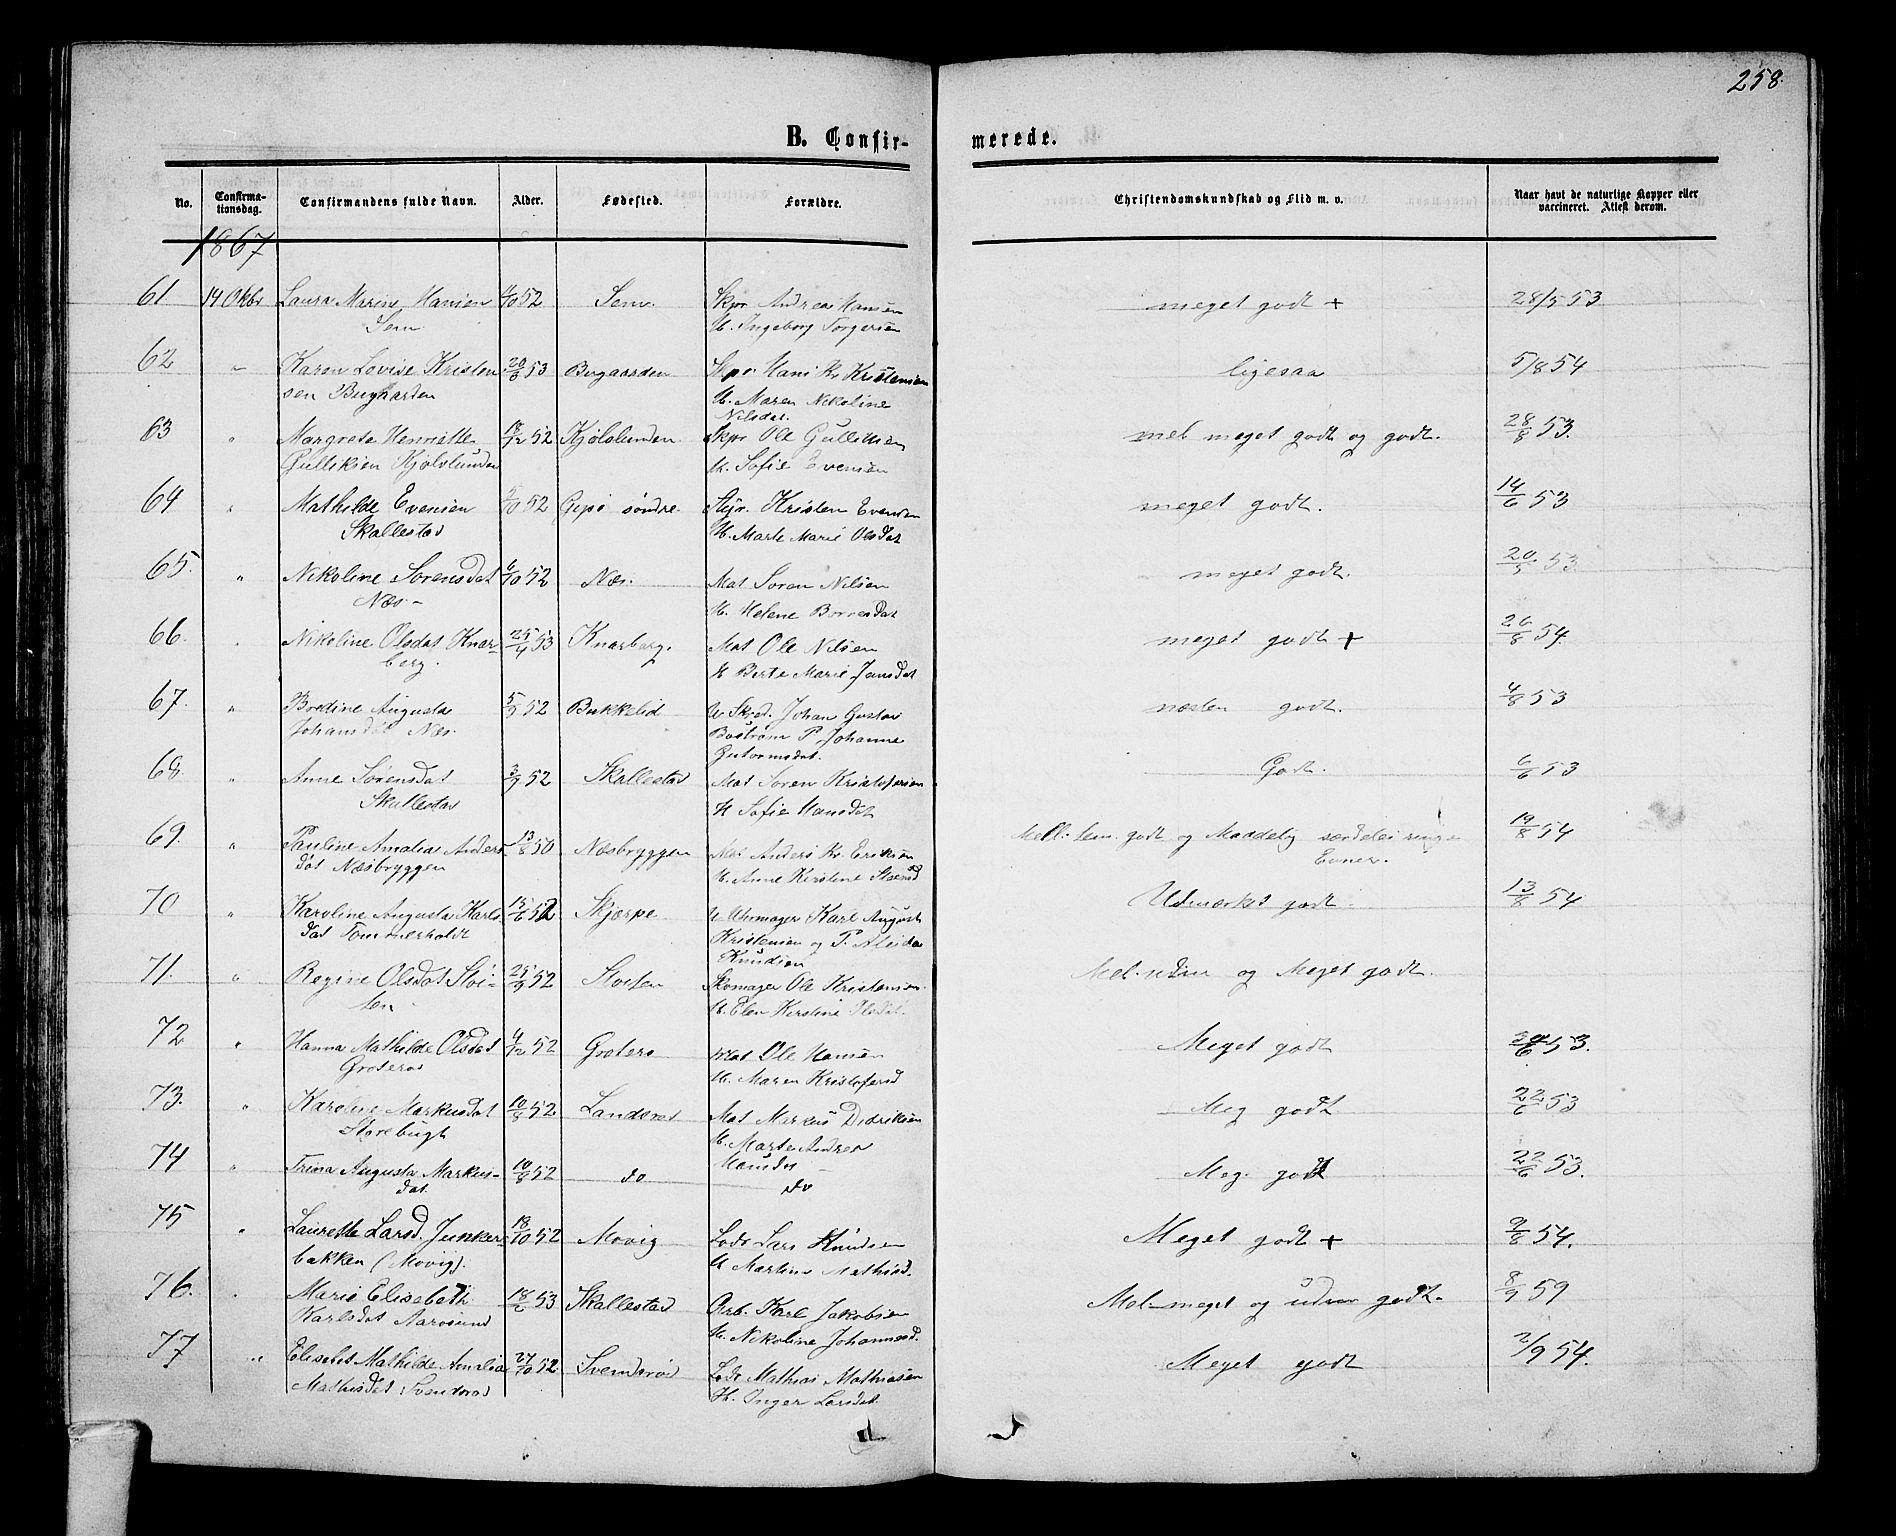 258.
B. Confirmerede.
No. Confirmationsdag. Confirmandens fulde Navn. Alder. Fødested. Forældre. Christendomskundskab og Flid m. v. Naar havt de naturlige Kopper eller vaccineret. Attest derom.
1867
61. 14 Okbr Laura Marine Hansen 4/10 52 Sem. Skpr Andreas Hansen meget godt + 28/5 53
Sem H. Ingeborg Torgersen
62 " Karen Lovise Kristen 20/8 53 Bugaarden Skpr Hans Kr Kristensen ligesaa 5/8 54
sen Bugaarden H. Maren Nikoline
Nilsdat.
63 " Margrete Henriette 18/12 52 Kjølslunden Skpr Ole Gulliksen mel meget godt og godt. 28/8 53.
Gulliksen Kjølslunden H. Sofie Evensen
64 " Mathilde Evensen 5/10 52 Gipø søndre Styr. Kristen Evensen meget godt. 14/6 53
Skallestad H. Marte Marie Olsdat
65. " Nikoline Sørensdat 6/10 52 Næs. Mat Søren Nilsen meget godt. 20/5 53.
Næs - H. Helene Borresdat
66. " Nikoline Olsdat Knar- 25/4 53 Knarberg. Mat Ole Nilsen meget godt + 26/8 54.
berg. H Berte Marie Jansdat
67. " Bredine Augusta 5/9 52 Bukkelid U Skred. Johan Gustav næsten godt. 4/8 53
Johansdat Næs. Bostrøm P. Johanne
Gutormsdat.
68. " Anne Sørensdat 3/9 52 Skallestad Mat Søren Kristofersen Godt. 6/6 53
Skallestad H Sofie Hansdat
69. " Pauline Amalia Anders 13/8 50 Næsbryggen Mat Anders Kr. Eriksen Mell. tem. godt og Maadelig særdeles ringe 19/8 54
dat Næsbryggen H. Anne Kirstine Evner.
70 " Karoline Augusta Karls 52 Skjerpe U Uhrmager Karl August Udmærket godt. 13/8 54
dat Tømmerholdt Kristensen og P. Aleida
Knudsen
71. " Regine Olsdat Stoi- 25/9 52 Skomager Ole Kristensen Mel. udm og Meget godt.
ten H. Elen Kirstine
72 " Hanna Mathilde Olsdat 4/12 52 Grøterø Mat Ole Hansen Meget godt 53.
Grøterø H. Maren Kristofersd
73. " Karoline Markusdat 10/8 52 Landerød Mat Markus Didriksen Meg godt 22/6 53
Storebugh H. Marte Andrea
74 " Trina Augusta Markus- 10/8 52 do Hansdat Meg. godt 22/6 53.
dat. do
75 " Laurette Larsd. Junker- 18/10 52 Movig Lods Lars Knudsen Meget godt + 9/8 54.
bakken (Movig). H Martine Mathisd.
76. " Marie Elisebeth 18/6 53 Skallestad Arb. Karl Jakobsen Mel. meget og udm godt. 8/7 59
Karlsdat Aarøsund H. Nikoline Johannesd.
77 " Elisabet Mathilde Amalia 27/10 52 Svendsrød Lods Mathias Mathiasen Meget godt 2/9 54.
Mathisdat Svendsrød H. Inger Larsdat.